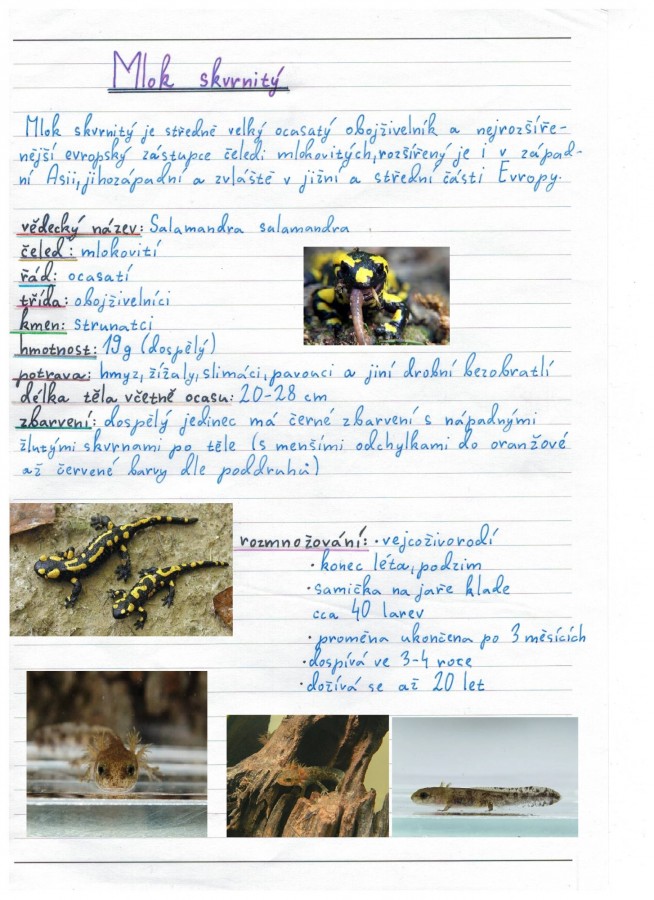 Mlok skvrnitý
Mlok skvrnitý je středně velký ocasatý obojživelník a nejrozšíře-
nější evropský zástupce čeledi mlokovitých, rozšířený je i v západ-
ní Asii, jihozápadní a zvláště v jižní a střední části Evropy.
vědecký název: Salamandra salamandra
čeleď: mlokovití
řád: ocasatí
třída: obojživelníci
kmen: strunatci
hmotnost: 19g (dospělý)
potrava: hmyz, žížaly, slimáci, pavouci a jiní drobní bezobratlí
délka těla včetně ocasu: 20-28 cm
zbarvení: dospělý jedinec má černé zbarvení s nápadnými
žlutými skvrnami po těle (s menšími odchylkami do oranžové
až červené barvy dle poddruhů)
rozmnožování: • vejcoživorodí
• konec léta, podzim
• samička na jaře klade
cca 40 larev
• proměna ukončena po 3 měsících
• dospívá ve 3-4 roce
• dožívá se až 20 let